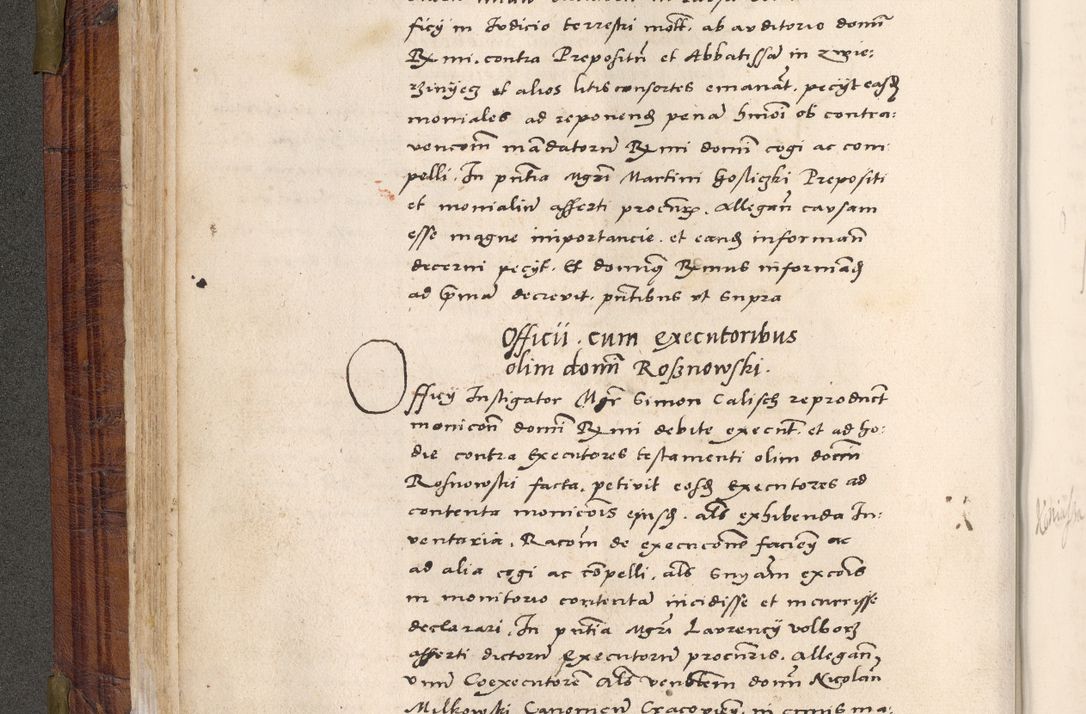 ficij in Iudicio terrestri mott. ab auditorio domi
Rmi. contra Prepositu et Abbatissa in zwie:
rzinijecz et alios litisconsortes emanat. pecijt easd
moniales ad reponend pena hmoi ob contra:
vencom mandatoru Rmi domi cogi ac com
pelli. In pntia Mgri Martini Prepositi
et monialiu asserti procur. Allegan causam
esse magne importancie. et eand informan
decerni pecijt. Et domiq Rmus informad
ad prma decrevit. pntibus ut supra
Officii. cum executoribus
olim domi Rosznowski.
Officij Instigator Mgr Simon Calisch reproduct
monicon domi Rmi debite execut. et ad ho:
die contra Executores testamenti olim domi
Rosnowski facta. petivit eosd Executores ad
contenta monicois eiusd. als exhibenda In:
ventaria. Racom de execucone faciend ac
ad alia cogi ac copelli. als excois
in monitorio contenta incidisse et incurrisse
declarari. In pntia Mgri Laurencij
asserti dictoru Executoru procuris. Allegan
unu Coexecutore als domi Nicolau
Milkowski Canonicu Cracovien. in ma: